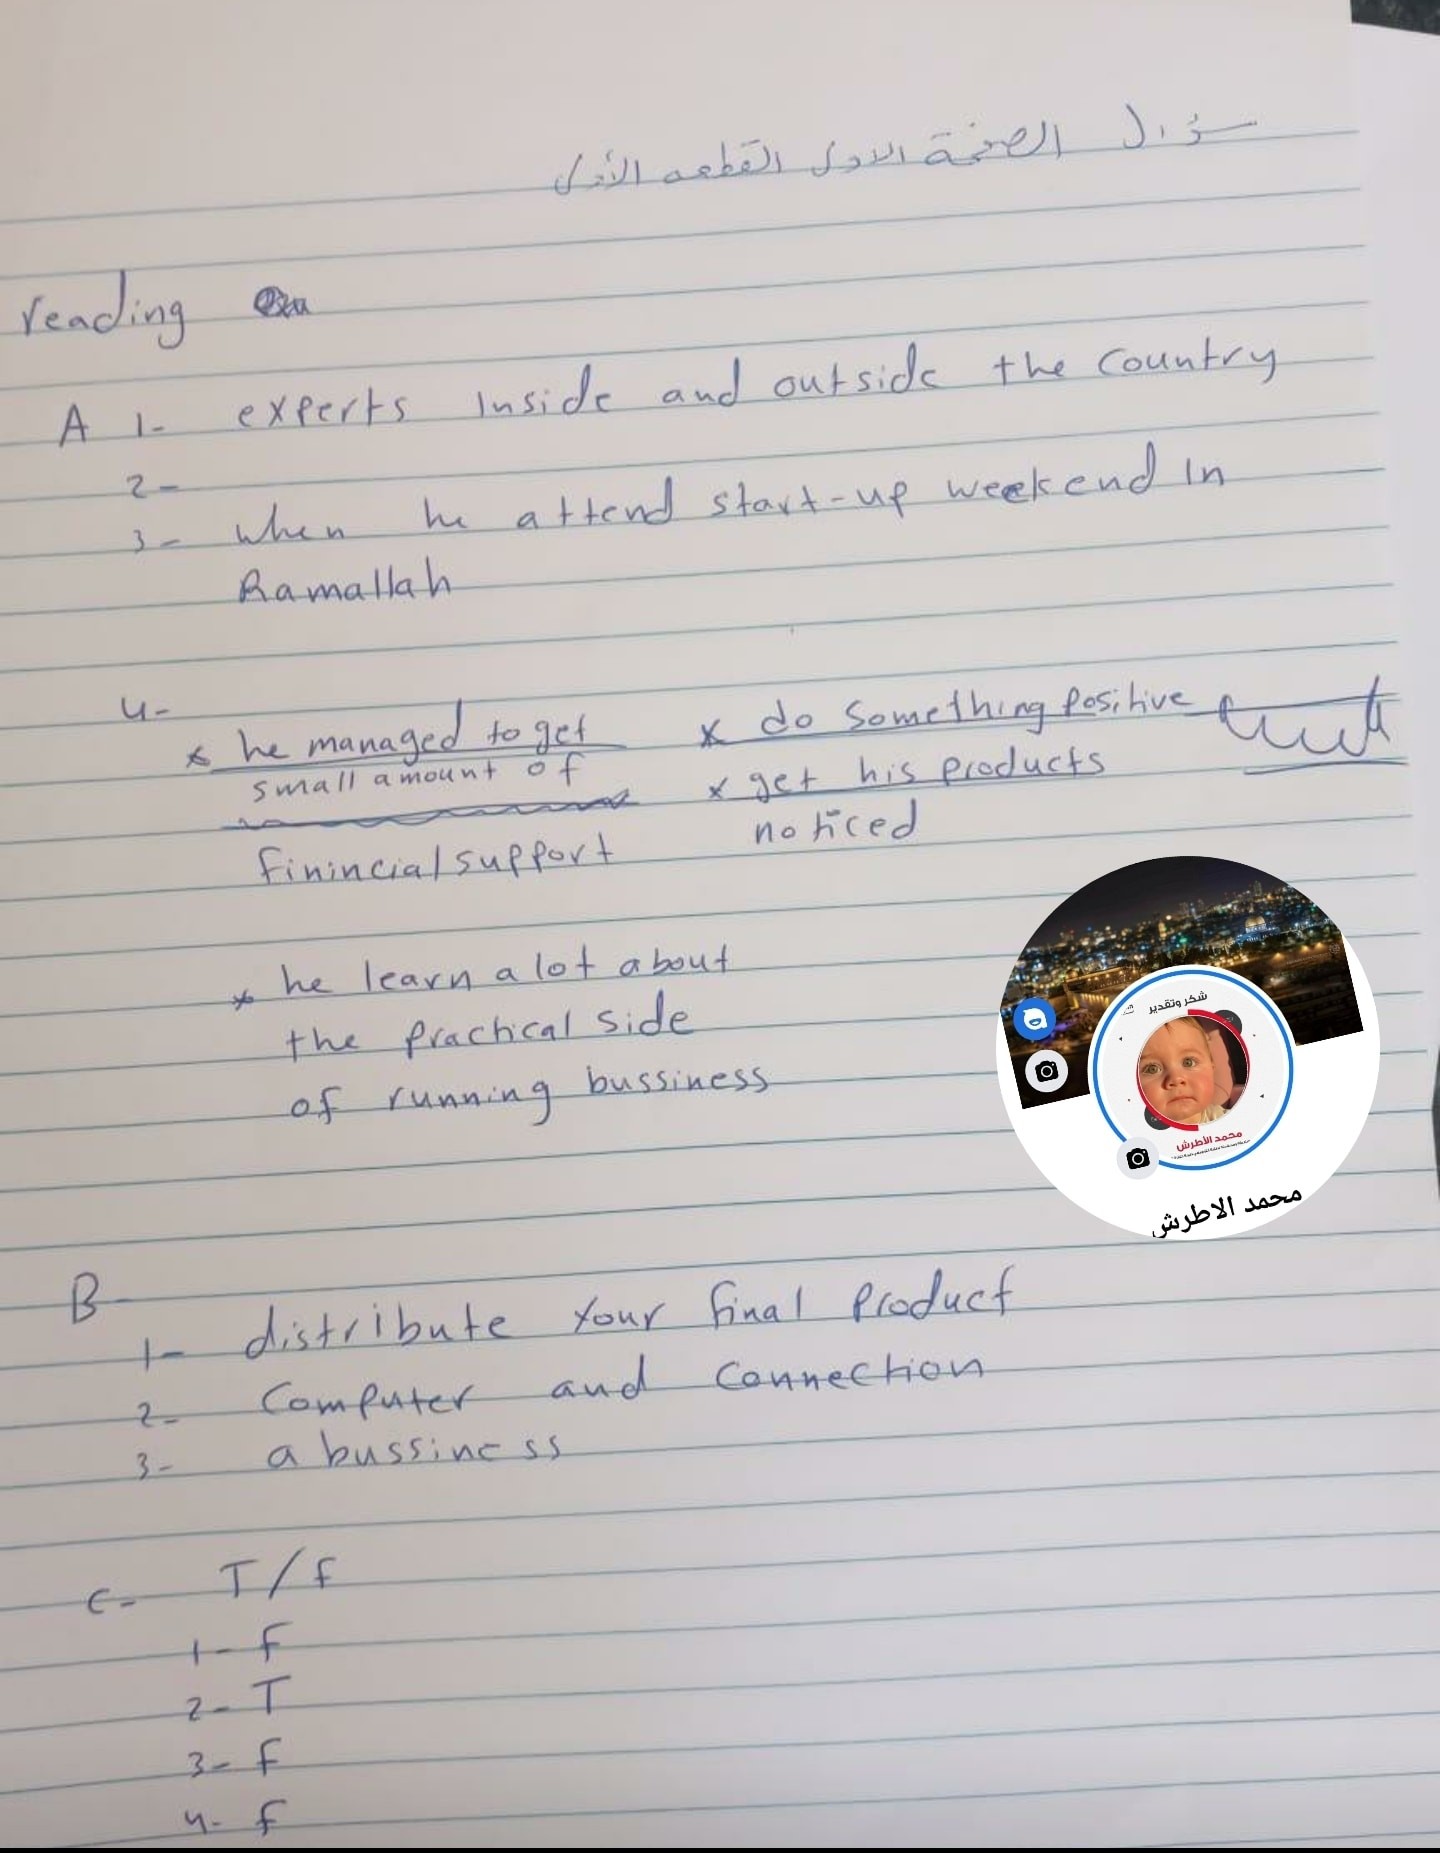 سؤال الصفحة الاول القطعه الأول
reading
A 1- experts inside and outside the country
2-
3- when he attend start-up weekend in
Ramallah
4-
* he managed to get
small amount of
finincial support
* do something positive
* get his products
noticed
* he learn a lot about
the practical side
of running bussiness
شكر وتقدير
محمد الأطرش
محمد الاطرش
B
1- distribute your final product
2- Computer and connection
3- a bussiness
C- T/f
1- f
2- T
3- f
4- f